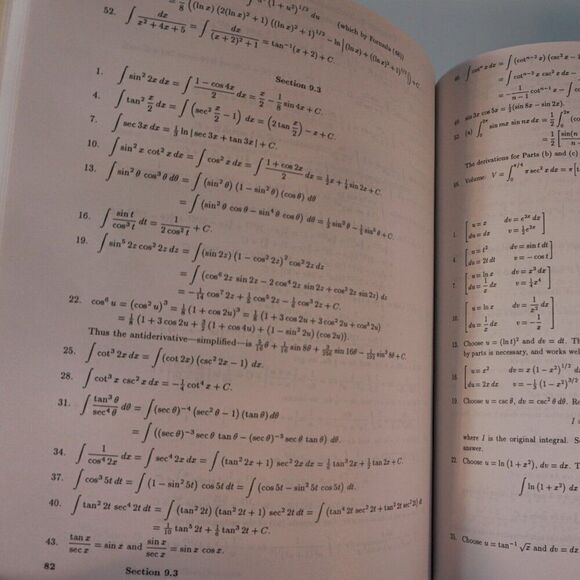 = 1/8 ((ln x) (2(ln x)² + 1) ((ln x)² + 1)^{1/2} − ln |(ln x) + ((ln x)² + 1)^{1/2}|) + C.
(which by Formula (66))
52. ∫ dx/(x² + 4x + 5) = ∫ dx/((x + 2)² + 1) = tan⁻¹(x + 2) + C.
Section 9.3
1. ∫ sin² 2x dx = ∫ (1 − cos 4x)/2 dx = x/2 − 1/8 sin 4x + C.
4. ∫ tan² x/2 dx = ∫ (sec² x/2 − 1) dx = (2 tan x/2) − x + C.
7. ∫ sec 3x dx = 1/3 ln | sec 3x + tan 3x | + C.
10. ∫ sin² x cot² x dx = ∫ cos² x dx = ∫ (1 + cos 2x)/2 dx = 1/2 x + 1/4 sin 2x + C.
13. ∫ sin² θ cos³ θ dθ = ∫ (sin² θ) (1 − sin² θ) (cos θ) dθ
= ∫ (sin² θ cos θ − sin⁴ θ cos θ) dθ = 1/3 sin³ θ − 1/5 sin⁵ θ + C.
16. ∫ sin t/cos³ t dt = 1/(2 cos² t) + C.
19. ∫ sin⁵ 2z cos² 2z dz = ∫ (sin 2z) (1 − cos² 2z)² cos² 2z dz
= ∫ (cos⁶ 2z sin 2z − 2 cos⁴ 2z sin 2z + cos² 2z sin 2z) dz
= −1/14 cos⁷ 2z + 1/5 cos⁵ 2z − 1/6 cos³ 2z + C.
22. cos⁶ u = (cos² u)³ = 1/8 (1 + cos 2u)³ = 1/8 (1 + 3 cos 2u + 3 cos² 2u + cos³ 2u)
= 1/8 (1 + 3 cos 2u + 3/2 (1 + cos 4u) + (1 − sin² 2u) (cos 2u)).
Thus the antiderivative—simplified—is
25. ∫ cot³ 2x dx = ∫ (cot 2x) (csc² 2x − 1) dx.
28. ∫ cot³ x csc² x dx = −1/4 cot⁴ x + C.
31. ∫ tan³ θ/sec⁴ θ dθ = ∫ (sec θ)⁻⁴ (sec² θ − 1) (tan θ) dθ
= ∫ ((sec θ)⁻³ sec θ tan θ − (sec θ)⁻⁵ sec θ tan θ) dθ.
34. ∫ 1/cos⁴ 2x dx = ∫ sec⁴ 2x dx = ∫ (tan² 2x + 1) sec² 2x dx = 1/6 tan³ 2x + 1/2 tan 2x + C.
37. ∫ cos³ 5t dt = ∫ (1 − sin² 5t) cos 5t dt = ∫ (cos 5t − sin² 5t cos 5t) dt.
40. ∫ tan² 2t sec⁴ 2t dt = ∫ (tan² 2t) (tan² 2t + 1) sec² 2t dt = ∫ (tan⁴ 2t sec² 2t + tan² 2t sec² 2t) dt
= 1/10 tan⁵ 2t + 1/6 tan³ 2t + C.
43. tan x/sec x = sin x and sin x/sec x = sin x cos x.
82 Section 9.3
The derivations for Parts (b) and (c)
Volume: V = ∫
u = x dv = e^{3x} dx
du = dx v = 1/3 e^{3x}
u = t² dv = sin t dt
du = 2t dt v = − cos t
u = ln x dv = x³ dx
du = 1/x dx v = 1/4 x⁴
u = ln x dv = 1/x² dx
du = 1/x dx v = −1/x
Choose u = (ln t)² and dv = dt.
by parts is necessary, and works
u = x² dv = x (1 − x²)^{1/2}
du = 2x dx v = −1/3 (1 − x²)^{3/2}
19. Choose u = csc θ, dv = csc² θ dθ.
where I is the original integral.
answer.
22. Choose u = ln (1 + x²), dv = dx.
∫ ln (1 + x²) dx
Choose u = tan⁻¹ √x and dv = dx